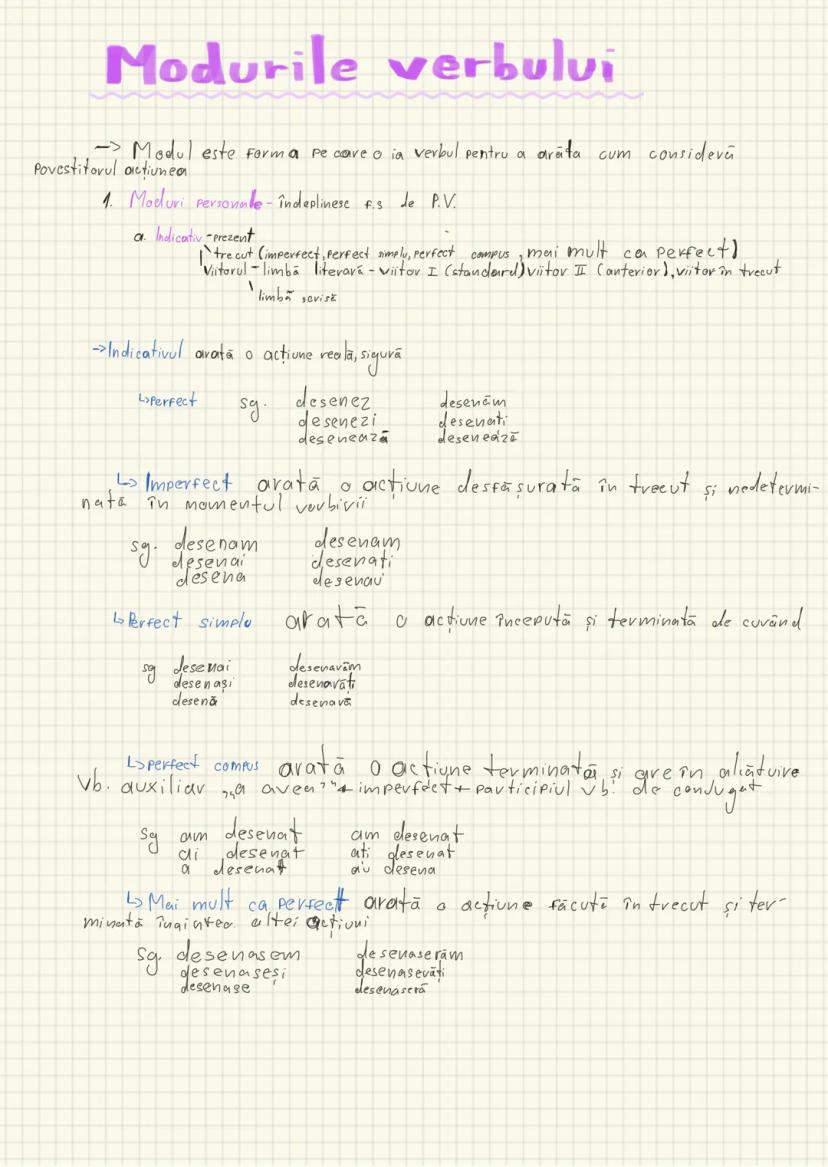 Modurile verbului
-> Modul este forma pe care o ia verbul pentru a arăta cum consideră
povestitorul acțiunea
1. Moduri personale - îndeplinesc f.s de P.V.
a. Indicativ - prezent
trecut (imperfect, perfect simplu, perfect compus, mai mult ca perfect)
Viitorul - limbă literară - viitor I (standard) viitor II (anterior), viitor în trecut
limbă
-> Indicativul arată o acțiune reală, sigură
↳ perfect sg. desenez desenăm
desenezi desenati
desenează desenează
↳ Imperfect arată o acțiune desfășurată în trecut și nedetermi-
nată în momentul vorbirii
sg. desenam desenam
desenai desenați
desena desenau
↳ Perfect simplu arată o acțiune începută și terminată de curând
sg desenai desenarăm
desenași desenarăți
desenă desenară
↳ perfect compus arată o acțiune terminată și are în alcătuire
Vb. auxiliar ,,a avea" + imperfect + participiul vb. de conjugat
sg am desenat am desenat
ai desenat ati desenat
a desenat au desena
↳ Mai mult ca perfect arată o acțiune făcută în trecut și ter-
minată înaintea altei acțiuni
sg. desenasem desenaserăm
desenaseși desenaserăți
desenase desenaseră